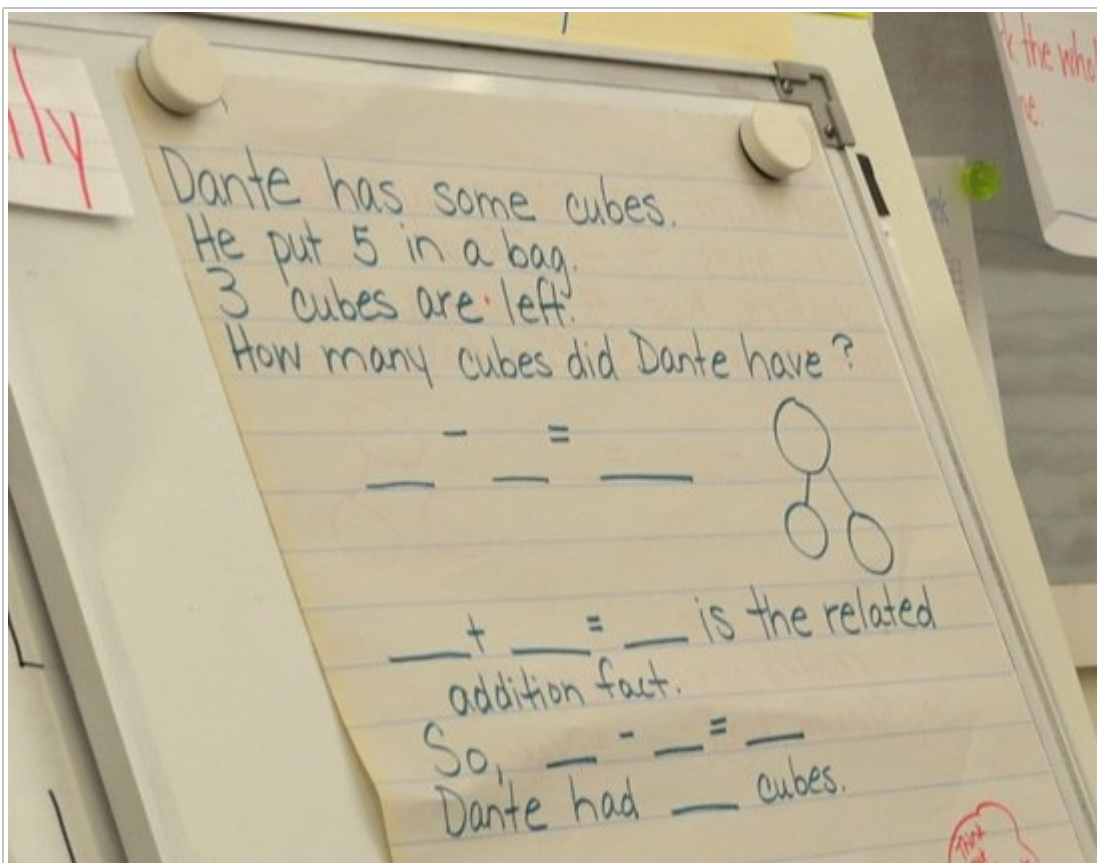 lly
k the who
e.
Dante has some cubes.
He put 5 in a bag.
3 cubes are left.
How many cubes did Dante have?
__ - __ = __
__ + __ = __ is the related
addition fact.
So, __ - __ = __
Dante had __ cubes.
Think